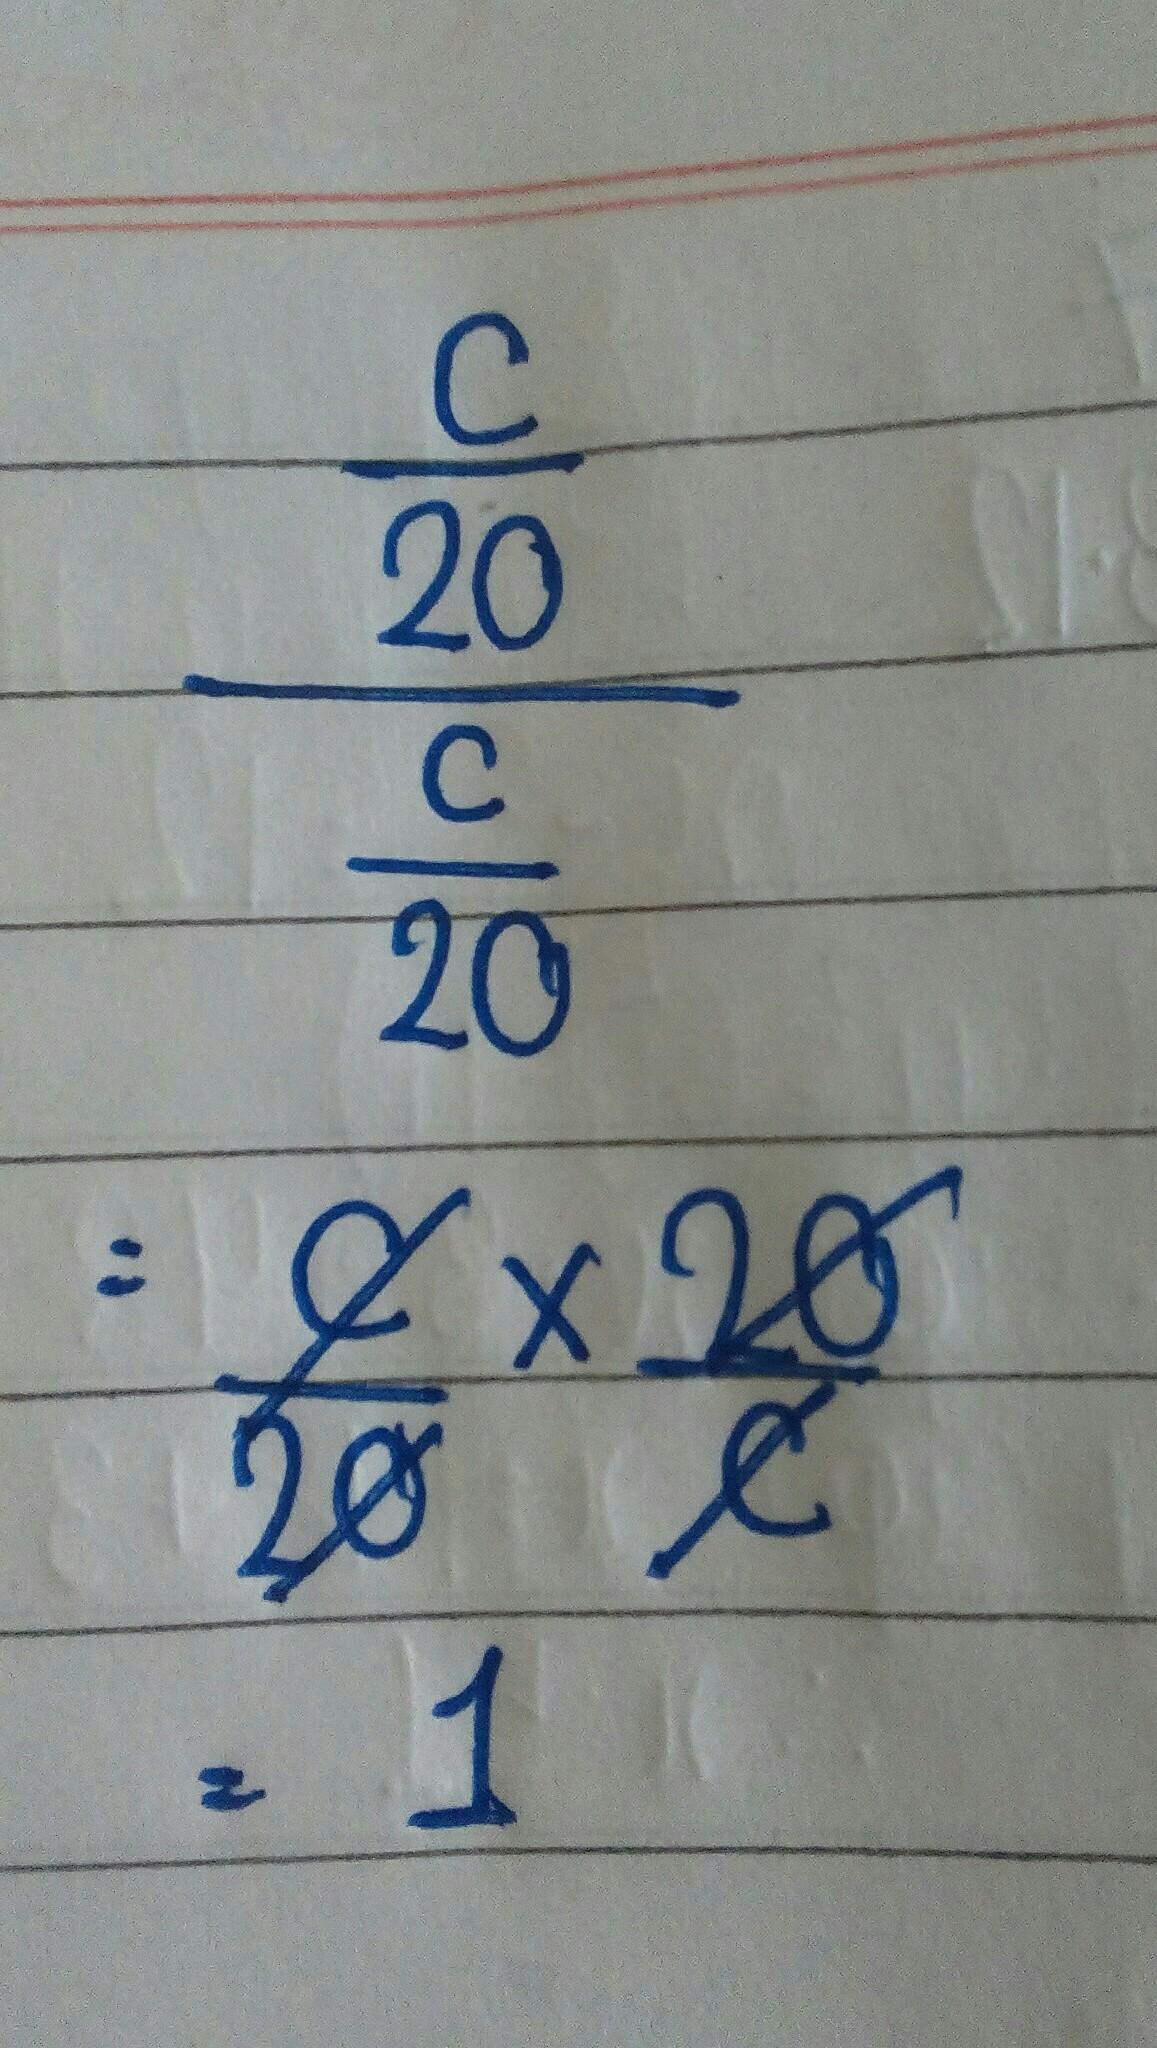 C
20
C
20
= C × 20
20 C
= 1